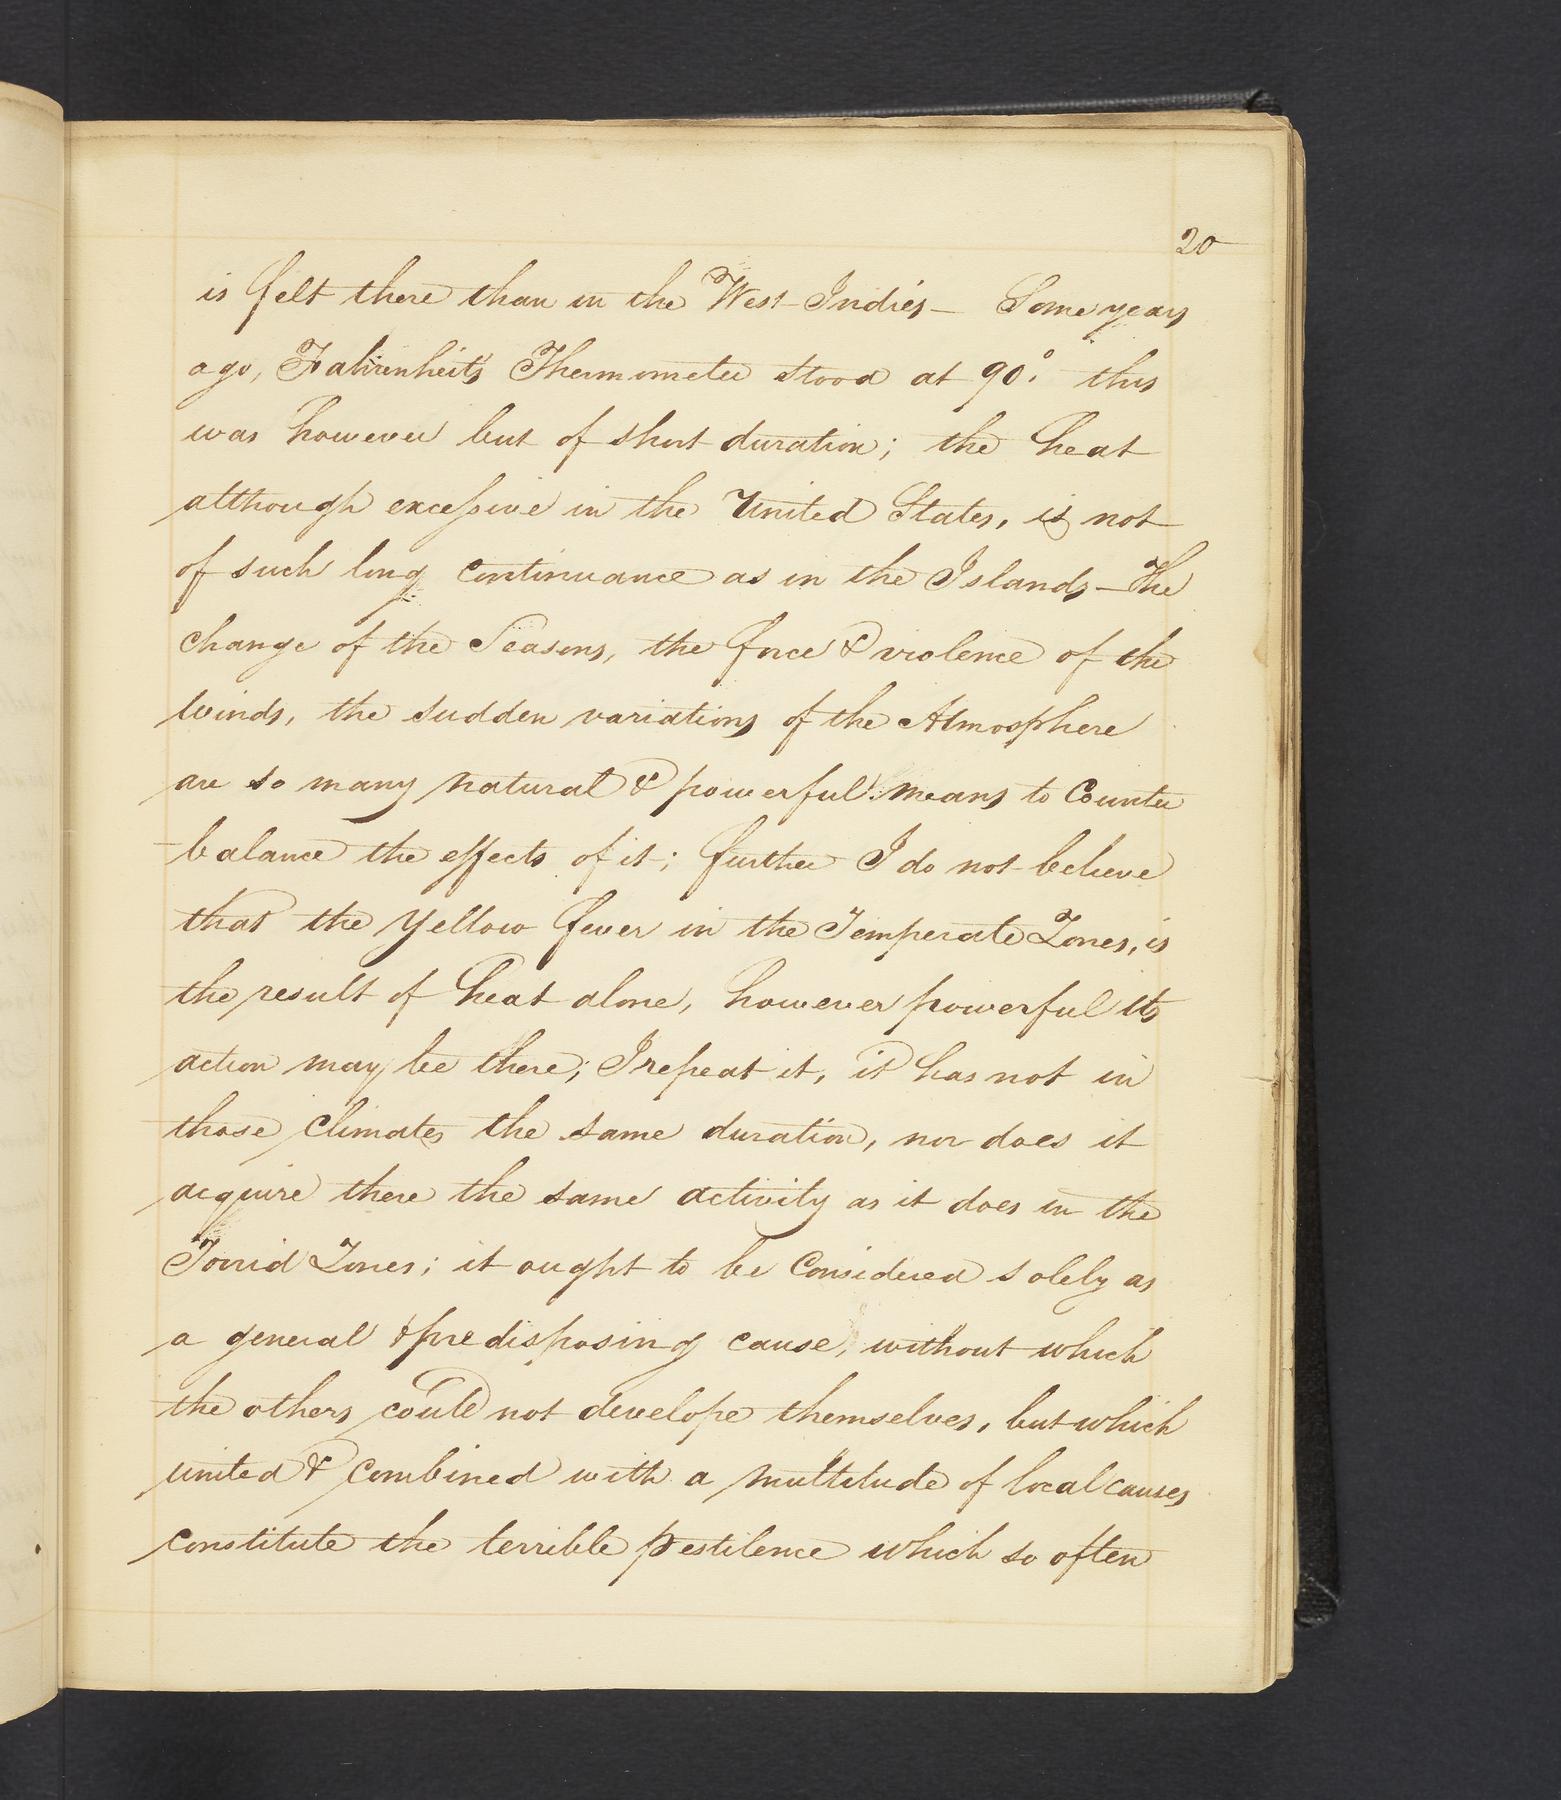 20
is felt there than in the West-Indies — Some years
ago, Fahrenheits Thermometer stood at 90.° this
was however but of short duration; the heat
although excessive in the United States, is not
of such long continuance as in the Islands — The
change of the Seasons, the force & violence of the
winds, the sudden variations of the Atmosphere
are so many natural & powerful means to Counter
balance the effects of it; further I do not believe
that the Yellow fever in the Temperate Zones, is
the result of heat alone, however powerful its
action may be there; I repeat it, it has not in
those climates the same duration, nor does it
acquire there the same activity as it does in the
Torrid Zones; it ought to be Considered solely as
a general & predisposing cause, without which
the others could not develope themselves, but which
united & combined with a multitude of local causes
constitute the terrible pestilence which so often